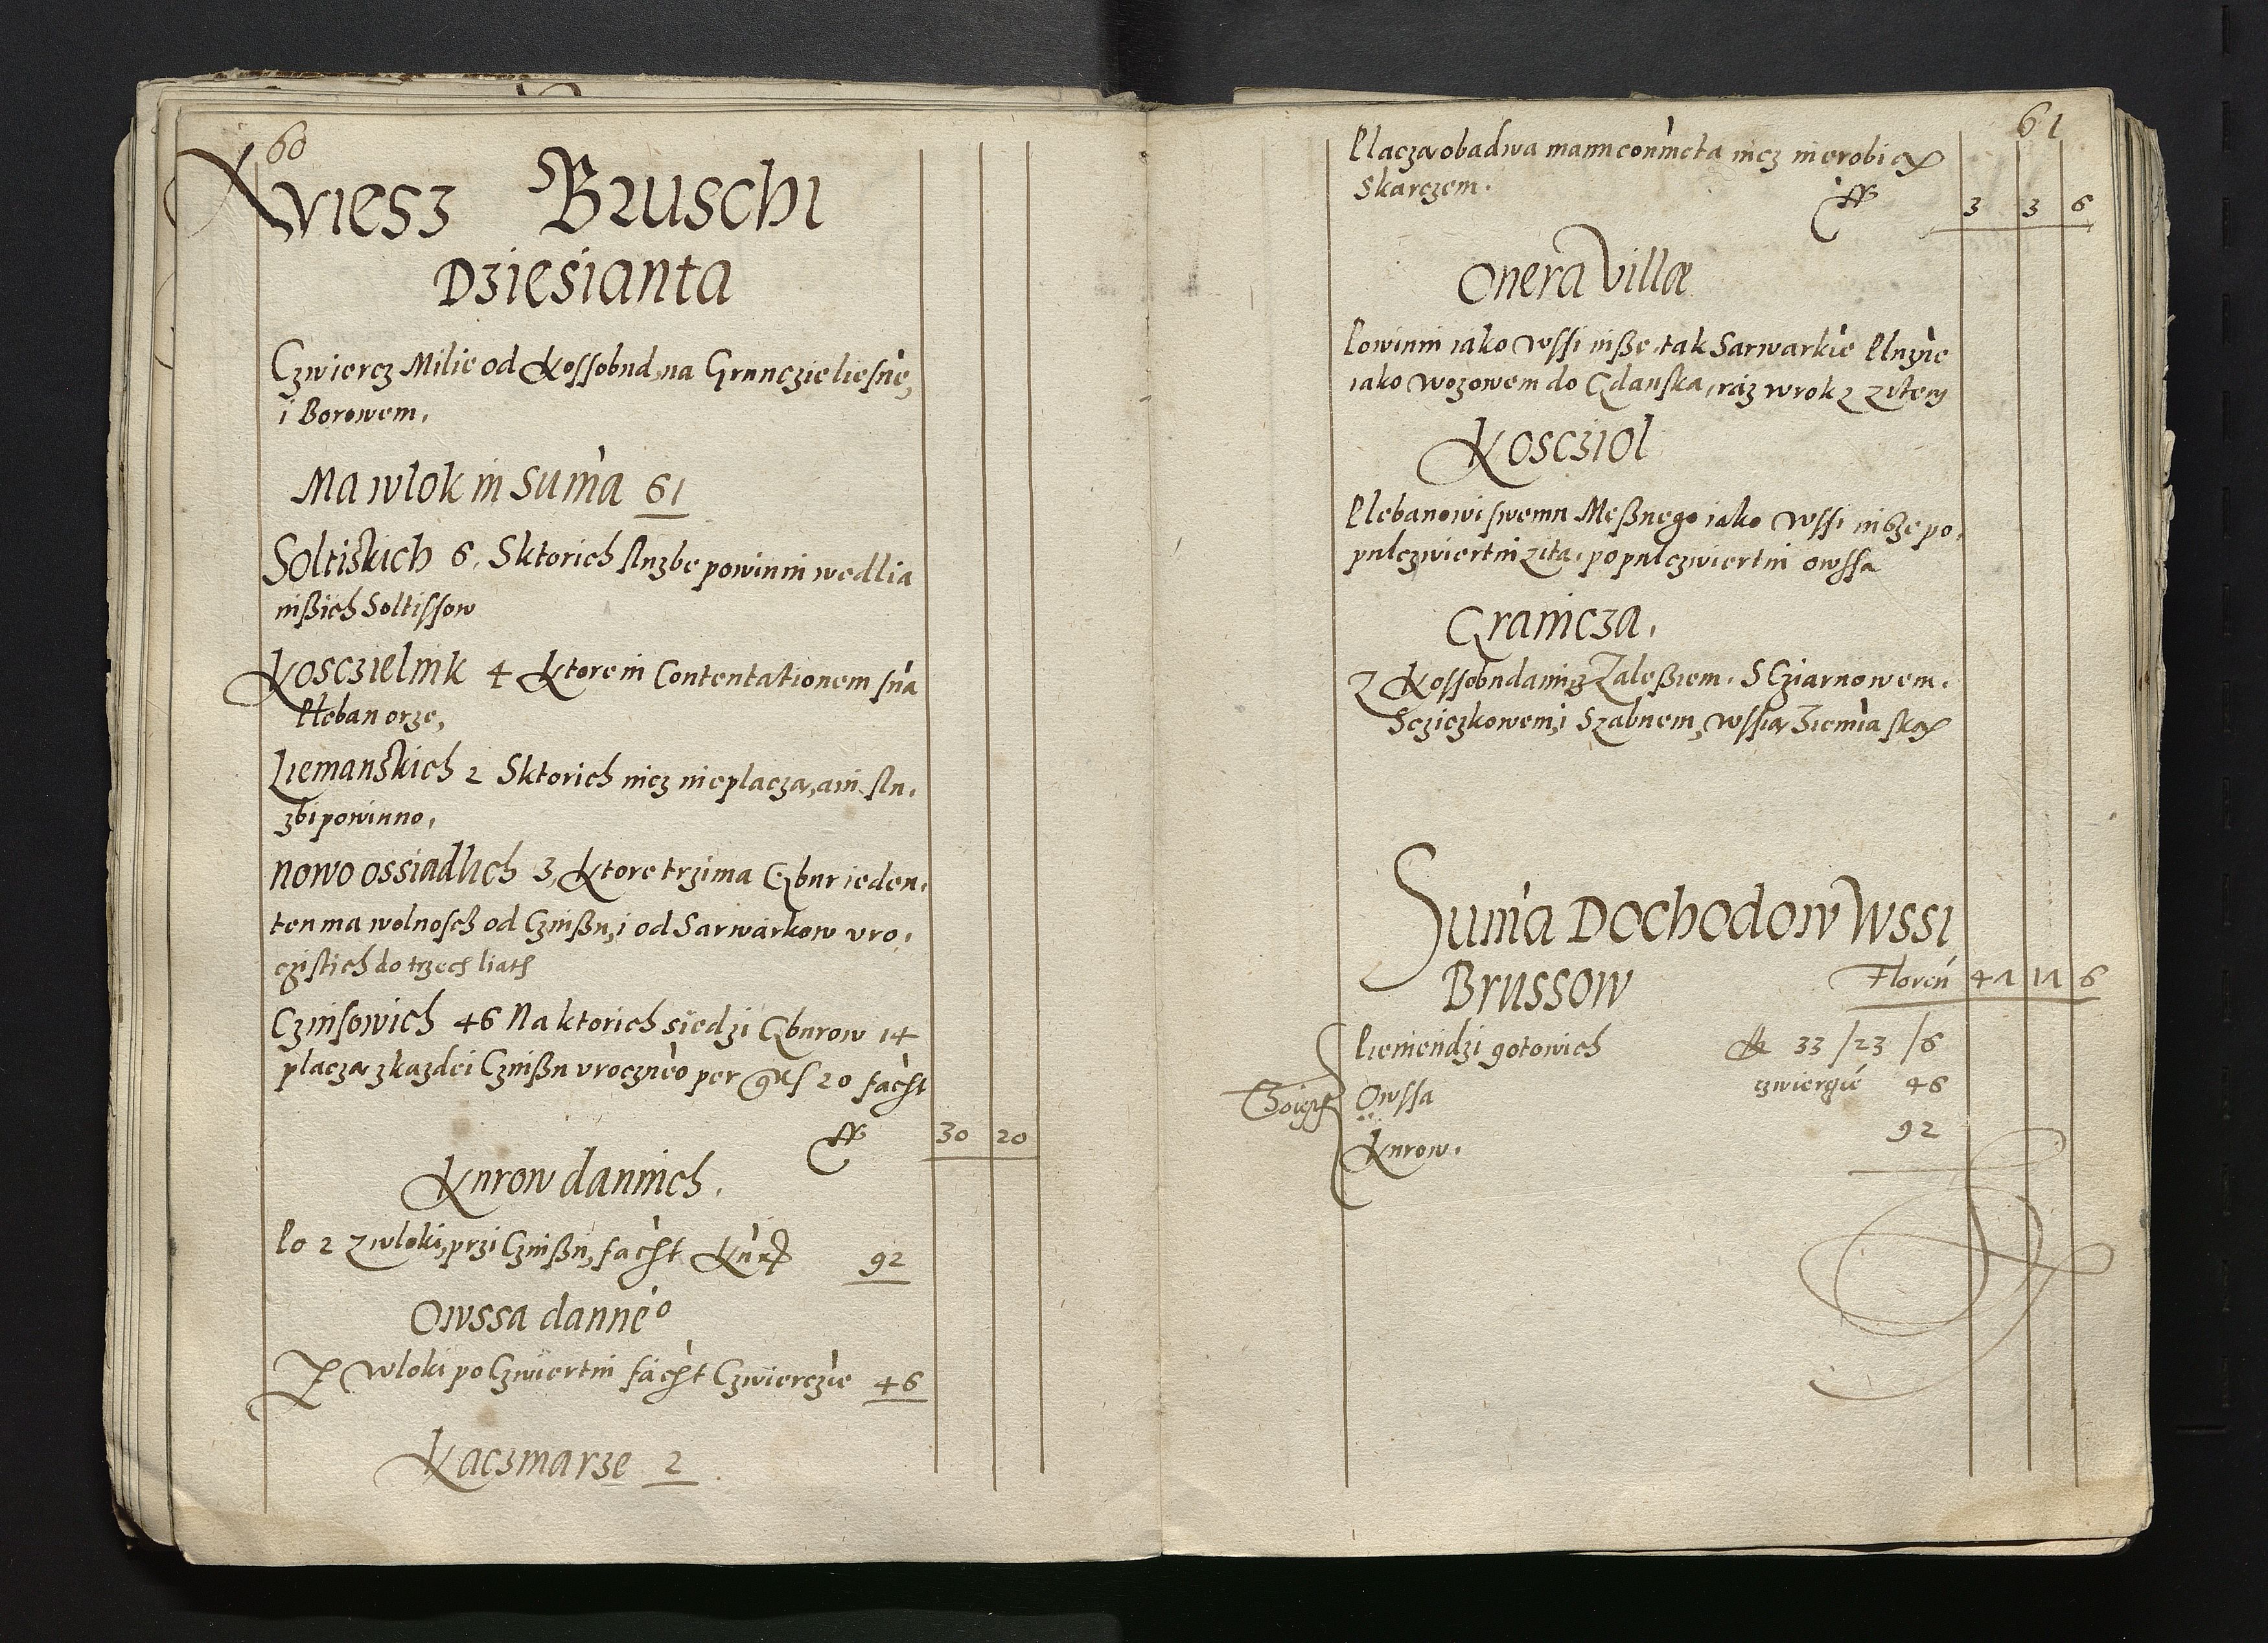 60
Wiesz Bruschi
Dziesianta
Czwiercz Milie od Kossobud, na Grunczie liesne,
i Borowem,
Ma wlok in Suma 61
Soltiskich 6, Sktorich sluzbe powinni wedlia
inßich Soltissow
Kosczielnik 4 Ktore in Contentationem sua
Pleban orze,
Liemanskich 2 Sktorich nicz nieplacza, ani slu,
zbi powinno,
Nowo ossiadlich 3, Ktore trzima Gbur ieden,
ten ma wolnosch od Czinßu, i od Sarwarkow vro,
czistich do trzech liath
Czinsowich 46 Na ktorich siedzi Gburow 14
placza zkazdei Czinßu vroczneo per grs 20 facht
fl 30 20
Kurow dannich,
Po 2 z wloki, przi Czinßu, facht Kur 92
Owssa danneo
Z Wloki po Czwiertni facht Czwierczie 46
Kaczmarze 2
61
Placza obadwa manu coniuncta nicz nierobią
Skarczem.
fl 3 3 6
Onera Villæ
Powinni iako Wssi inße tak Sarwarkie Pluzne
iako wozowem do Gdanska, raz wrok z zitem
Kosciol
Plebanowi swemu Meßnego iako Wssi inße po,
pulczwiertni zita, po pulczwiertni owssa
Granicza,
Z Kossobudami, z Zaleßiem, S Cziarnowem,
Sczieczkowem, i Szabnem, Wssią Ziemiaską
Suma Dochodow Wssi
Brussow Floren 41 11 6
Pieniendzi gotowich fl 33/23/6
Owssa czwierczie 46
Kurow. 92